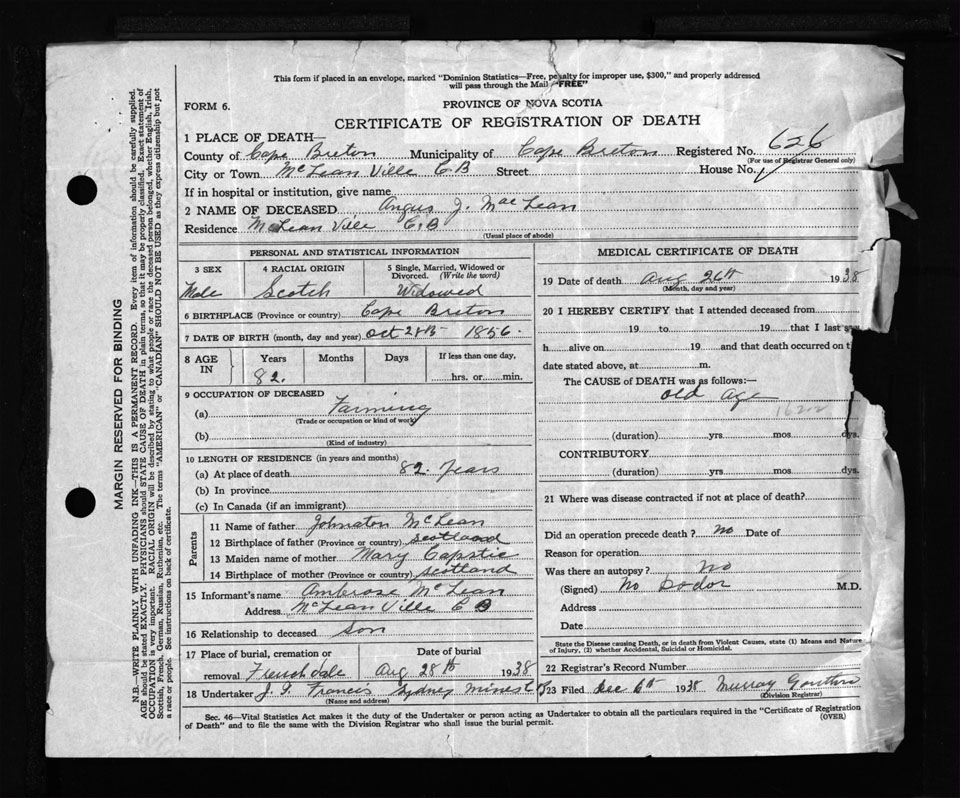 This form if placed in an envelope, marked "Dominion Statistics—Free, penalty for improper use, $300," and properly addressed
will pass through the Mail "FREE"
FORM 6.
PROVINCE OF NOVA SCOTIA
CERTIFICATE OF REGISTRATION OF DEATH
1 PLACE OF DEATH—
County of Cape Breton Municipality of Cape Breton Registered No. 626
(For use of Registrar General only)
City or Town McLean Ville C B Street House No.
If in hospital or institution, give name
2 NAME OF DECEASED Angus J. MacLean
Residence McLean Ville C.B
(Usual place of abode)
PERSONAL AND STATISTICAL INFORMATION
3 SEX 4 RACIAL ORIGIN 5 Single, Married, Widowed or Divorced. (Write the word)
Male Scotch Widowed
6 BIRTHPLACE (Province or country) Cape Breton
7 DATE OF BIRTH (month, day and year) Oct 28th 1856
8 AGE IN Years Months Days If less than one day,
82. hrs. or min.
9 OCCUPATION OF DECEASED
(a) Farming
(Trade or occupation or kind of work)
(b)
(Kind of industry)
10 LENGTH OF RESIDENCE (in years and months)
(a) At place of death 82. Years
(b) In province
(c) In Canada (if an immigrant)
Parents
11 Name of father Johnston McLean
12 Birthplace of father (Province or country) Scotland
13 Maiden name of mother Mary
14 Birthplace of mother (Province or country) Scotland
15 Informant's name Ambrose McLean
Address McLean Ville C B
16 Relationship to deceased Son
17 Place of burial, cremation or Date of burial
removal Frenchdale Aug 28th 1938
18 Undertaker J. Francis Sydney Mines C B
(Name and address)
MEDICAL CERTIFICATE OF DEATH
19 Date of death Aug 26th 1938
(Month, day and year)
20 I HEREBY CERTIFY that I attended deceased from
19 to 19 that I last
h alive on 19 and that death occurred on
date stated above, at m.
The CAUSE of DEATH was as follows:—
Old Age
(duration) yrs. mos. dys.
CONTRIBUTORY
(duration) yrs. mos. dys.
21 Where was disease contracted if not at place of death?
Did an operation precede death? No Date of
Reason for operation
Was there an autopsy? No
(Signed) No Doctor M.D.
Address
Date
State the Disease causing Death, or in death from Violent Causes, state (1) Means and Nature
of Injury, (2) whether Accidental, Suicidal or Homicidal.
22 Registrar's Record Number
23 Filed Dec 6th 1938 Murray
(Division Registrar)
Sec. 46—Vital Statistics Act makes it the duty of the Undertaker or person acting as Undertaker to obtain all the particulars required in the "Certificate of Registration
of Death" and to file the same with the Division Registrar who shall issue the burial permit.
(OVER)
MARGIN RESERVED FOR BINDING
N.B.—WRITE PLAINLY WITH UNFADING INK—THIS IS A PERMANENT RECORD. Every item of information should be carefully supplied.
AGE should be stated EXACTLY. PHYSICIANS should STATE CAUSE OF DEATH in plain terms, so that it may be properly classified. Exact statement of
OCCUPATION is very important. RACIAL ORIGIN will be described by stating to what people or race the deceased person belonged, whether English, Irish,
Scottish, French, German, Russian, Ruthenian, etc. The terms "AMERICAN" or "CANADIAN" SHOULD NOT BE USED as they express citizenship but not
a race or people. See instructions on back of certificate.